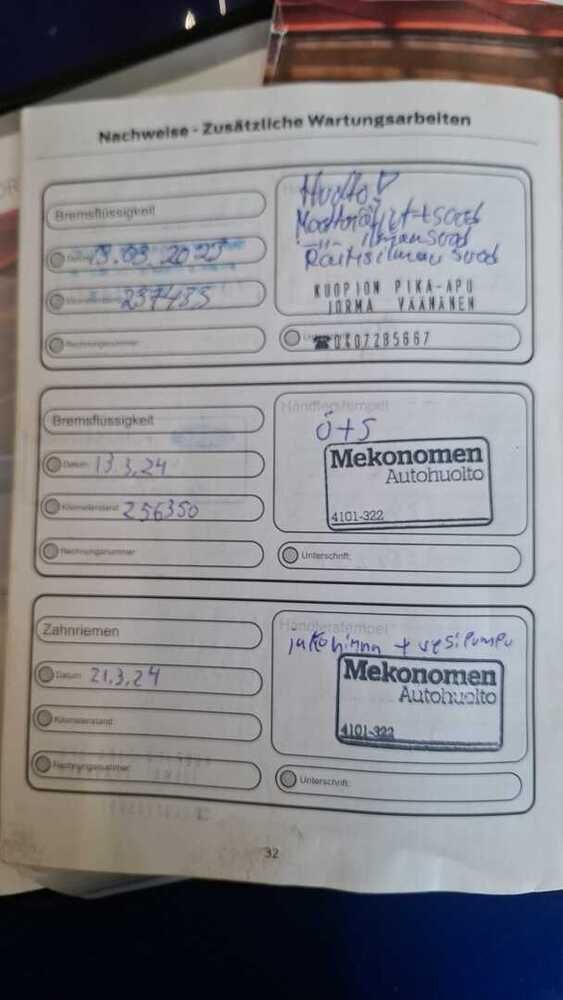 Nachweise - Zusätzliche Wartungsarbeiten
Bremsflüssigkeit
Huolto
237435
ilmansuod
Raitisilmansuod
KUOPION PIKA-APU
JORMA VÄÄNÄNEN
Rechnungsnummer:
☎0407285667
Bremsflüssigkeit
Händlerstempel
Ö+S
Datum: 13.3.24
Mekonomen
Autohuolto
Kilometerstand: 256350
4101-322
Rechnungsnummer:
Unterschrift:
Zahnriemen
Händlerstempel
jakohihna + vesipumpu
Datum: 21.3.24
Mekonomen
Autohuolto
Kilometerstand:
4101-322
Rechnungsnummer:
Unterschrift:
32